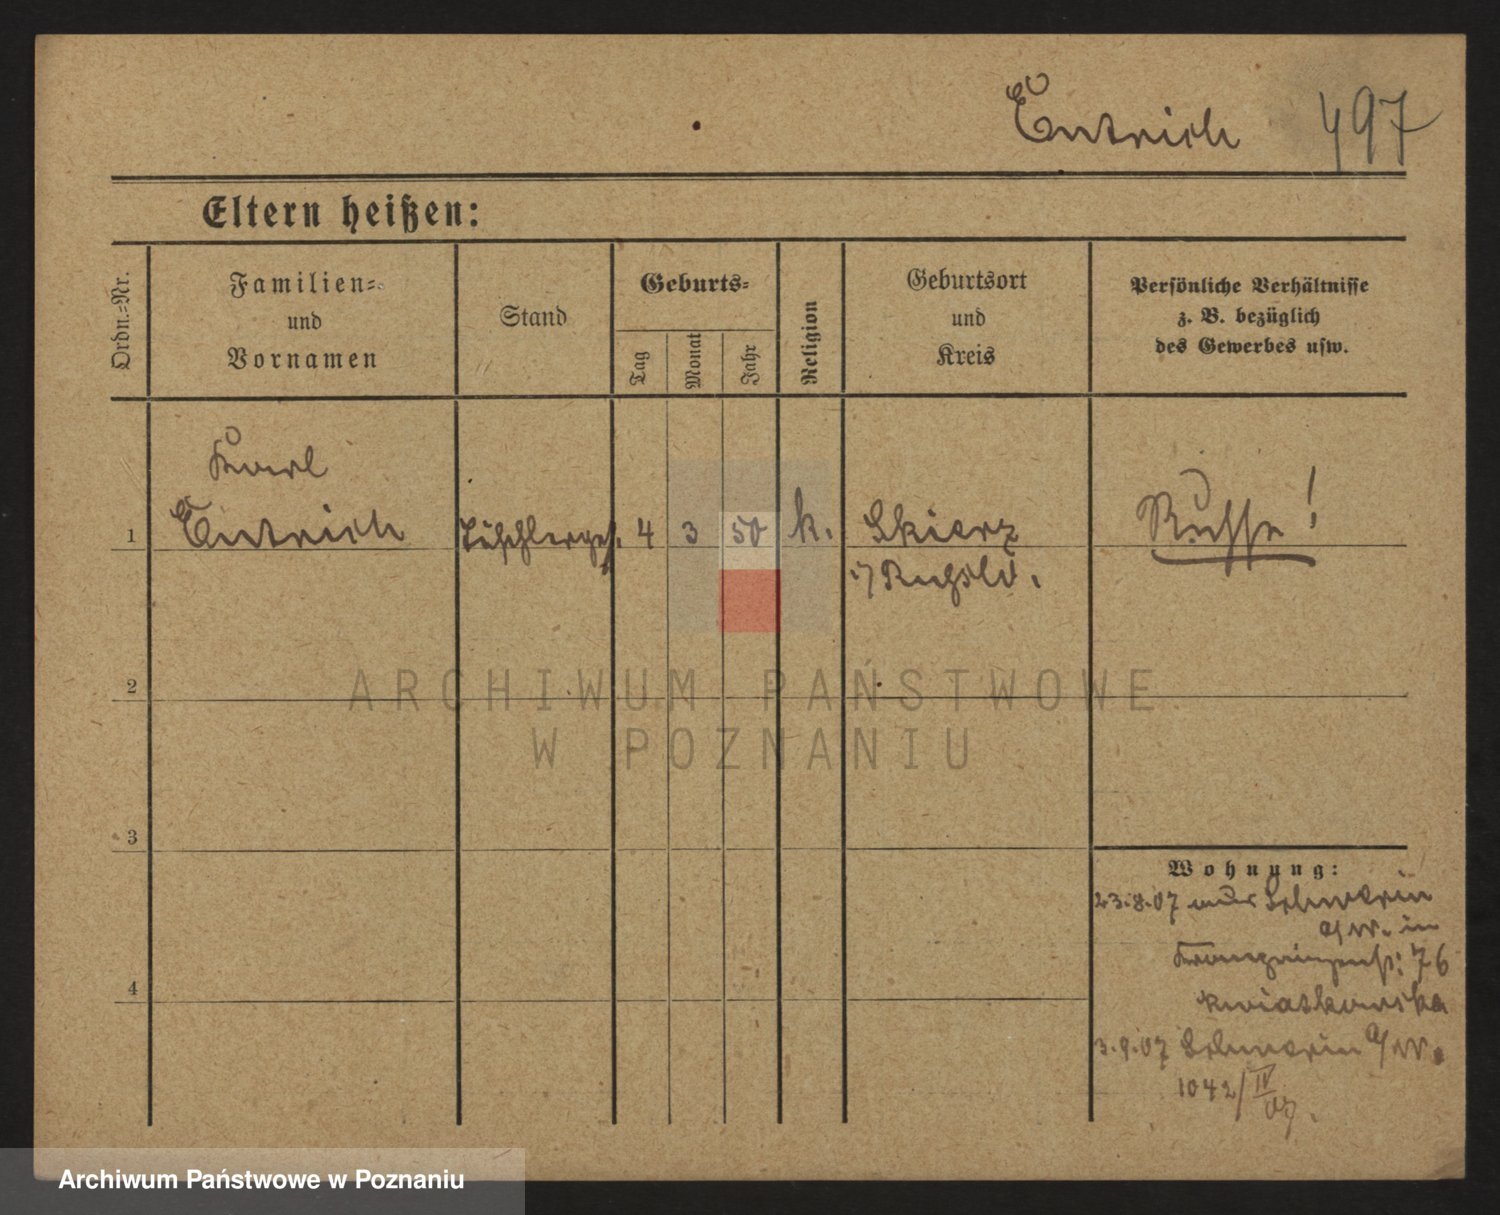 Entrich 497
Eltern heißen:
Ordn.-Nr.
Familien-
und
Vornamen
Stand
Geburts-
Tag
Monat
Jahr
Religion
Geburtsort
und
Kreis
Persönliche Verhältnisse
z. B. bezüglich
des Gewerbes usw.
Karl
1 Entrich Tischlerges. 4 3 50 k. Skierz Russe!
i/ Rußld.
2
3
4
Wohnung:
23.8.07 aus Schwerin
a/W. in
Kronprinzenstr. 76
Kwiatkowska
3.9.07 Schwerin a/W.
1042/IV
07.
ARCHIWUM PAŃSTWOWE
W POZNANIU
Archiwum Państwowe w Poznaniu